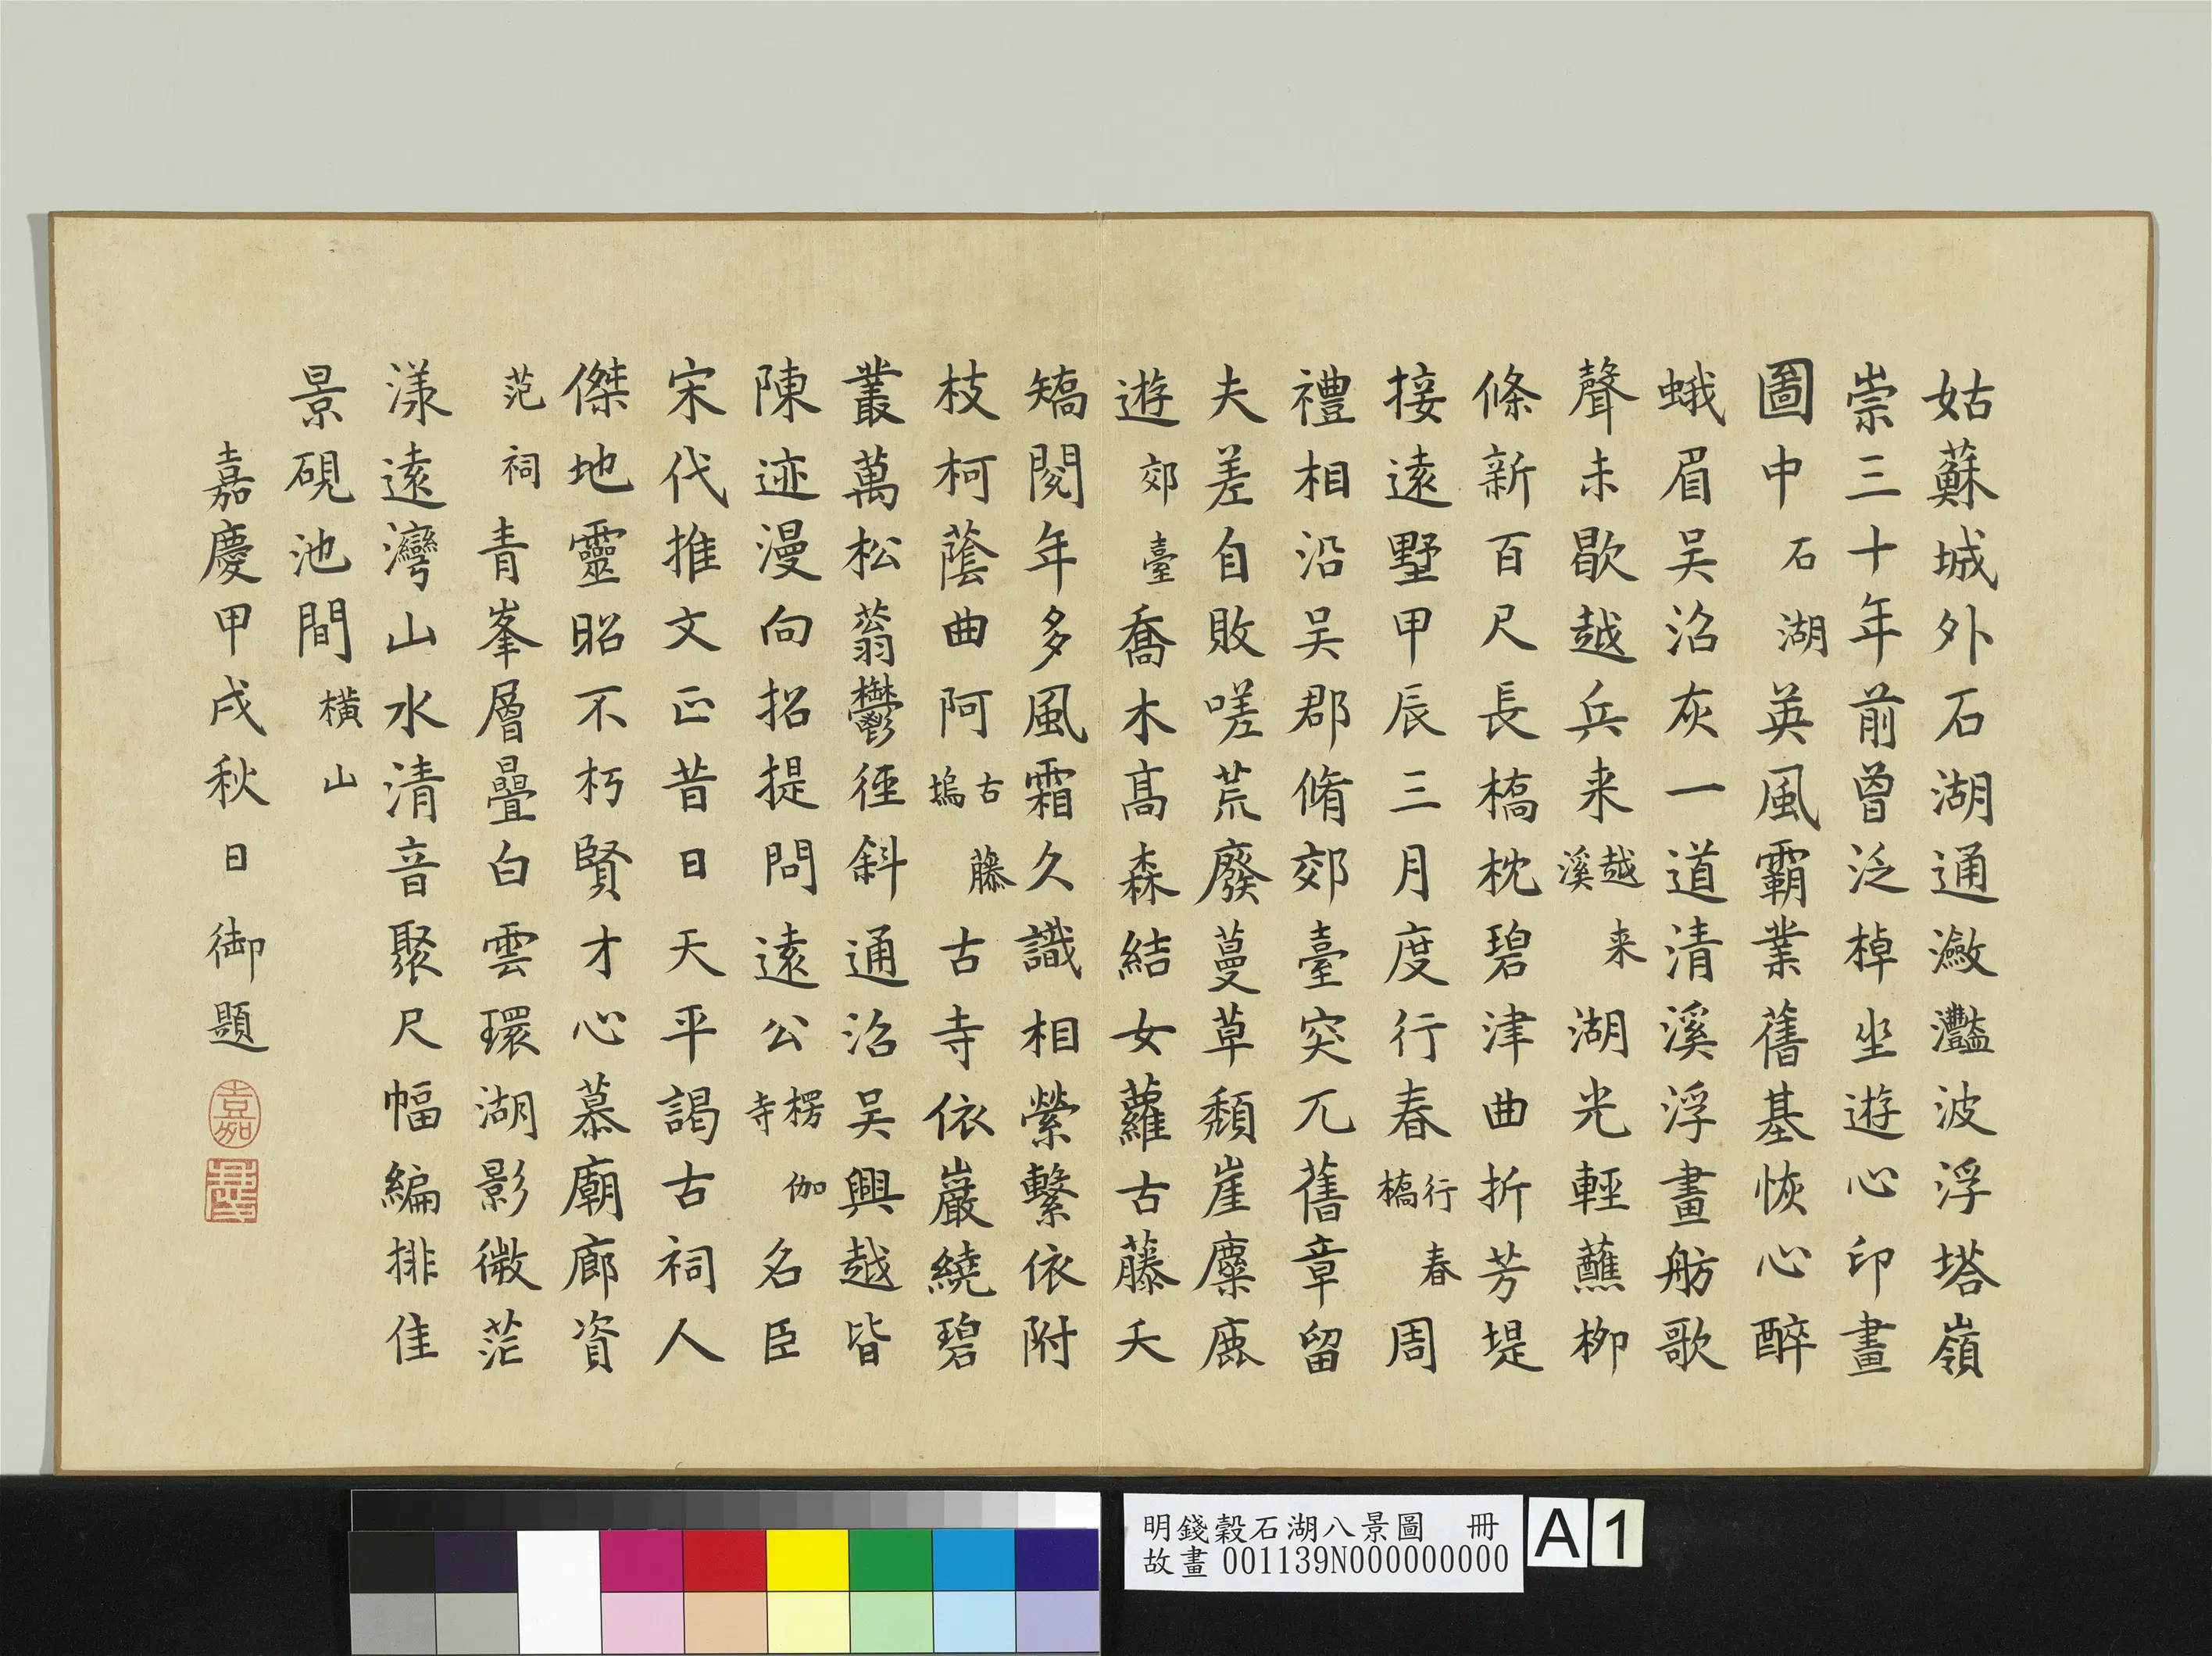 姑蘇城外石湖通瀲灩波浮塔嶺
崇三十年前曾泛棹坐遊心印畫
圖中石湖英風霸業舊基恢心醉
蛾眉吴沼灰一道清溪浮畫舫歌
聲未歇越兵来越来溪湖光輕蘸柳
條新百尺長橋枕碧津曲折芳堤
接遠墅甲辰三月度行春行春橋周
禮相沿吴郡脩郊臺突兀舊章留
夫差自敗嗟荒廢蔓草頹崖麋鹿
遊郊臺喬木髙森結女蘿古藤夭
矯閱年多風霜久識相縈繫依附
枝柯蔭曲阿古藤塢古寺依巖繞碧
叢萬松蓊鬱徑斜通沼吴興越皆
陳迹漫向招提問遠公楞伽寺名臣
宋代推文正昔日天平謁古祠人
傑地靈昭不朽賢才心慕廟廊資
范祠青峯層疊白雲環湖影微茫
漾遠灣山水清音聚尺幅編排佳
景硯池間橫山
嘉慶甲戌秋日御題
嘉
明錢穀石湖八景圖 冊
故畫001139N000000000
A 1